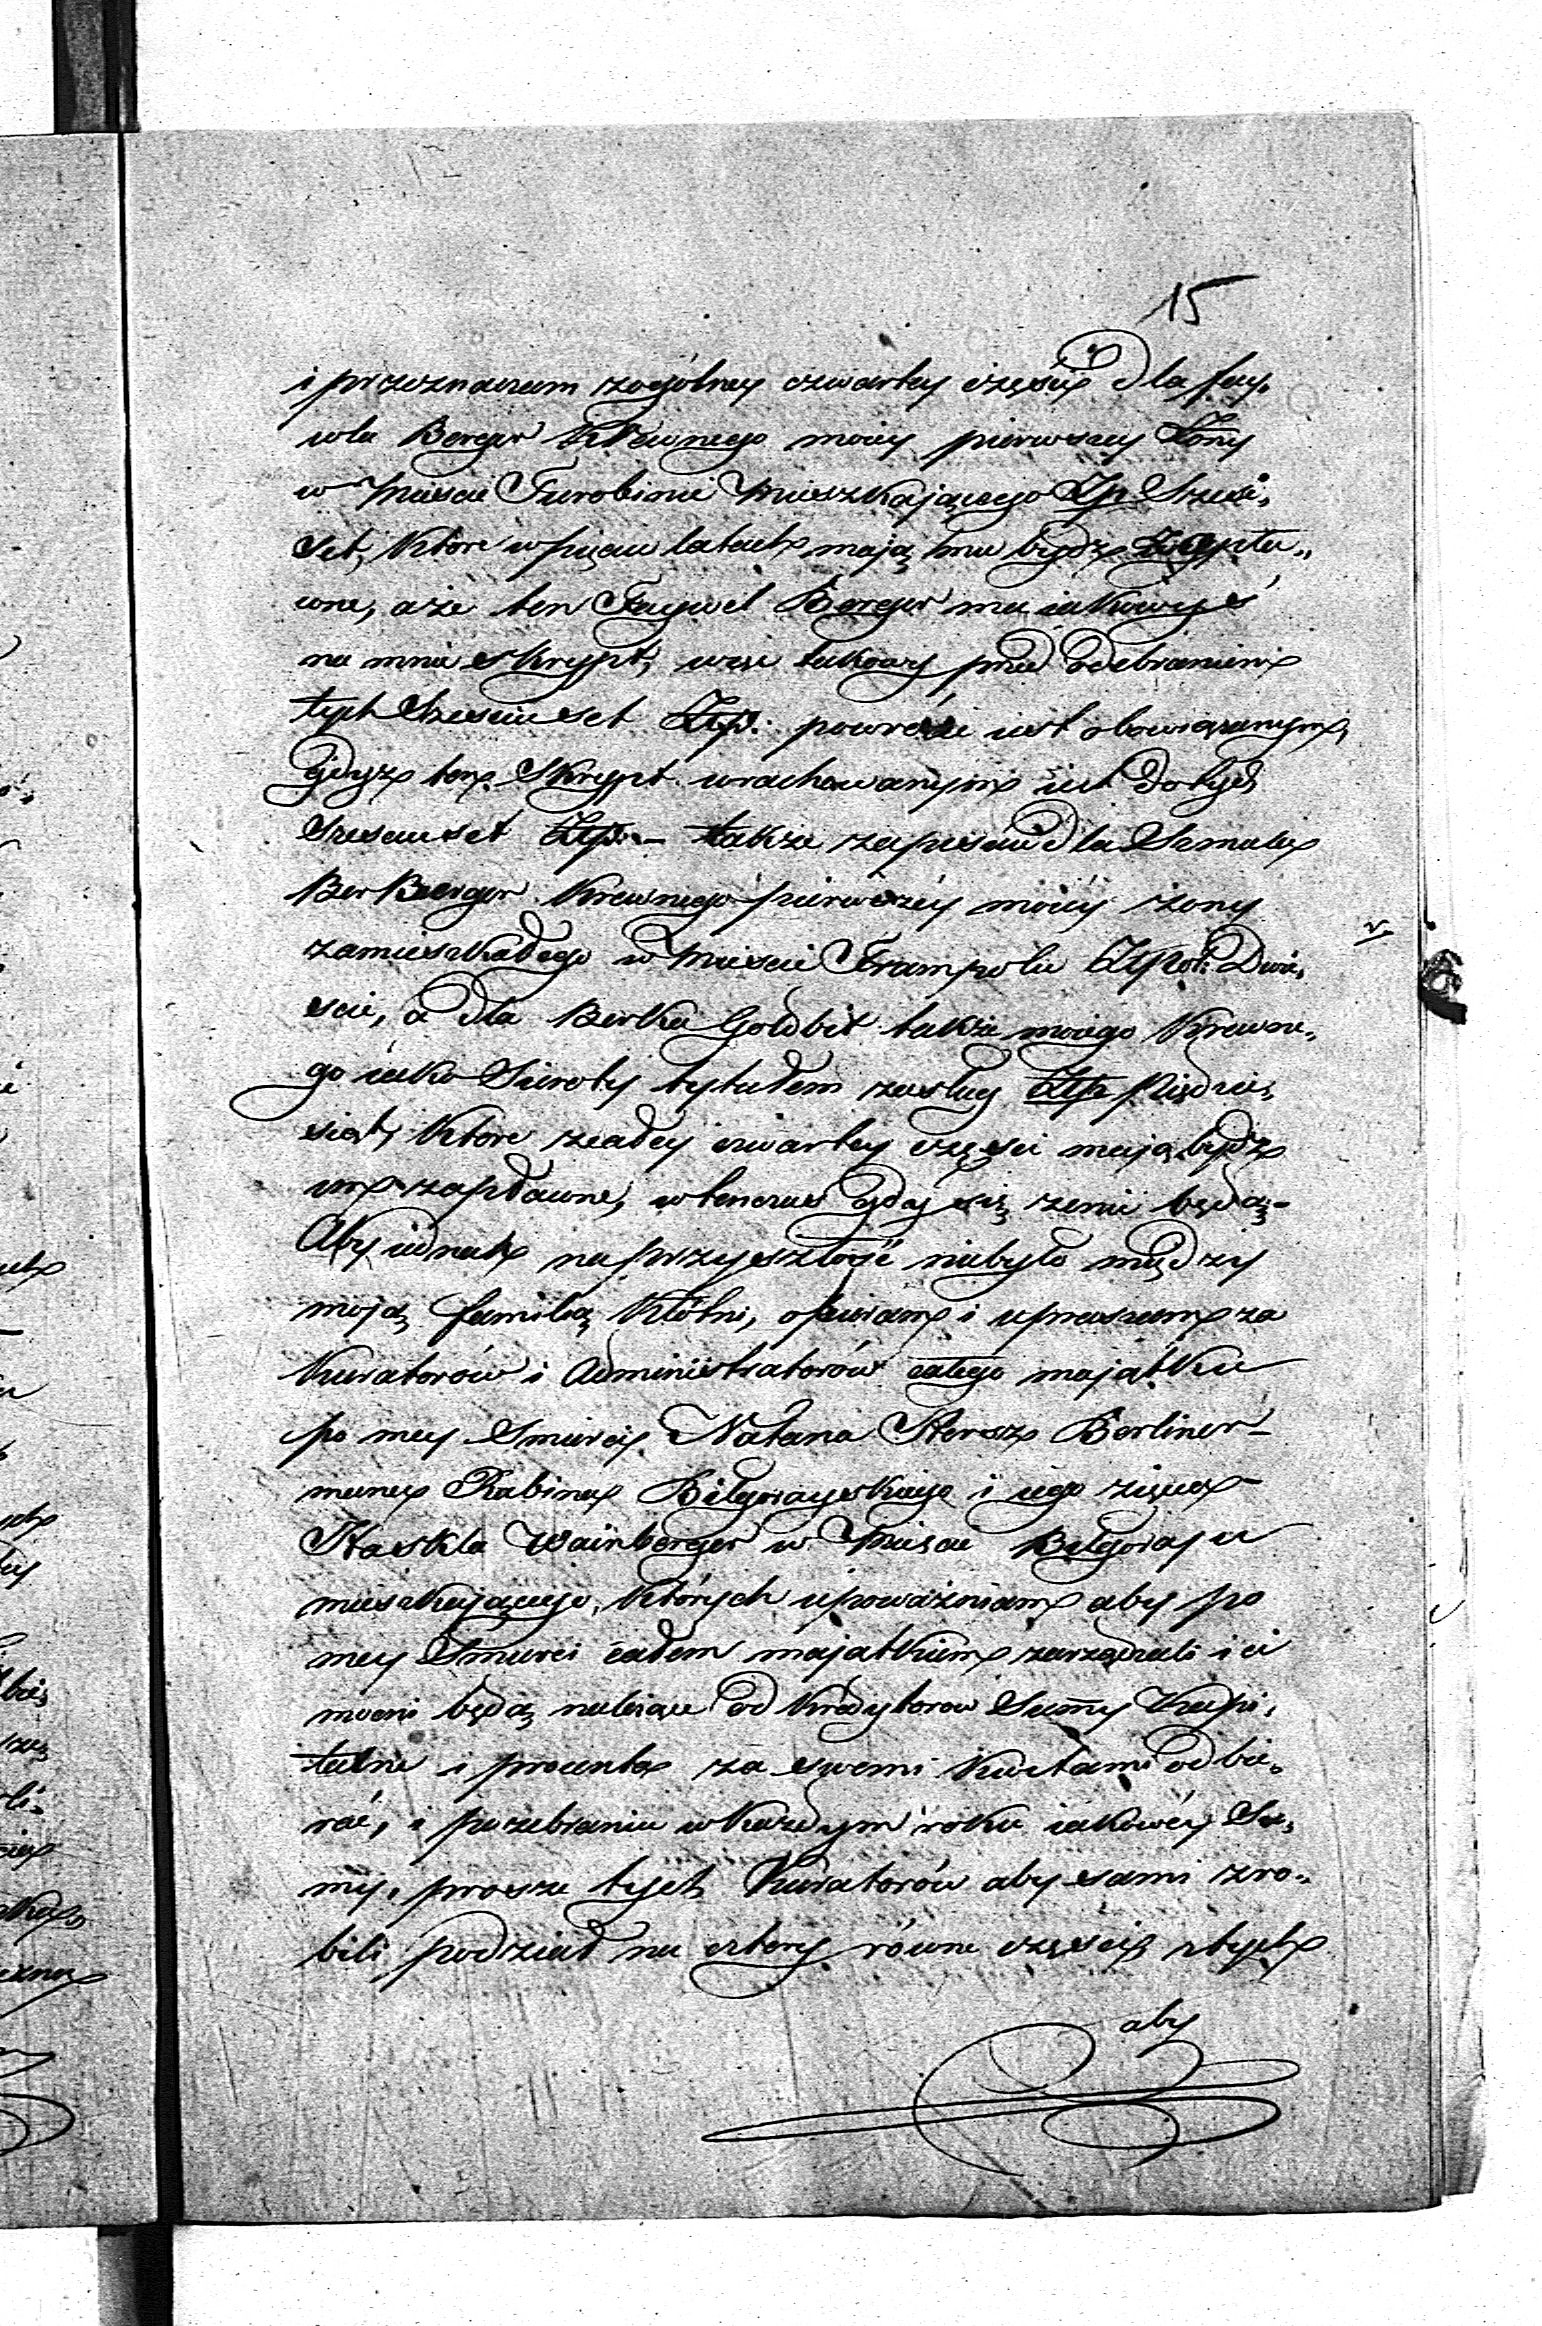 15
i przeznaczam zogólney czwartey części dla Fay,
wla Berger krewnego moiey pierwszey Żony
w Mieście Turobinie Mieszkaiącego Złp Sześć,
set, które w pięciu latach mają mu bydz zapła„
cone, a że ten Faywel Berger ma iakowyś
na mnie skrypt, więc takowy przed odebraniem
tych Sześciuset Złp. powrócić iest obowiązanym,
gdyż ten Skrypt wrachowanym iest do tych
Sześciuset Złp. – także zapisuię dla Szmula
Ber Berger Krewnego pierwszéy moiéy żony
zamieszkałego w Mieście Frampolu Złpol: Dwie,
ście, a dla Berka Goldbit także moiego Krewne„
go iako Sieroty tytułem zasług Złp Pięćdzie,
siąt, które z całey czwartey części mają bydz
im zapłacone, wtenczas gdy się zemi będą –
Aby iednak na przyszłość niebyło między
moją familią kłótni, obieram i upraszam za
Kuratorów i Administratorów całego majątku
po mey Śmierci Natana Hersz Berliner –
mana Rabina Biłgorayskiego i iego zięcia
Haskla Wainberger w Mieście Biłgoraju
mieszkającego, których upoważniam aby po
mey Śmierci całem majątkiem zarządzali i ci
mocni będą należące od Kredytorow Summy Kapi,
talne i procenta za swemi Kwitami odbie„
rać, i pozebraniu w każdym roku iakowéy Su,
my, proszę tych Kuratorów aby sami zro„
bili podział na cztery równe części, z tych
aby